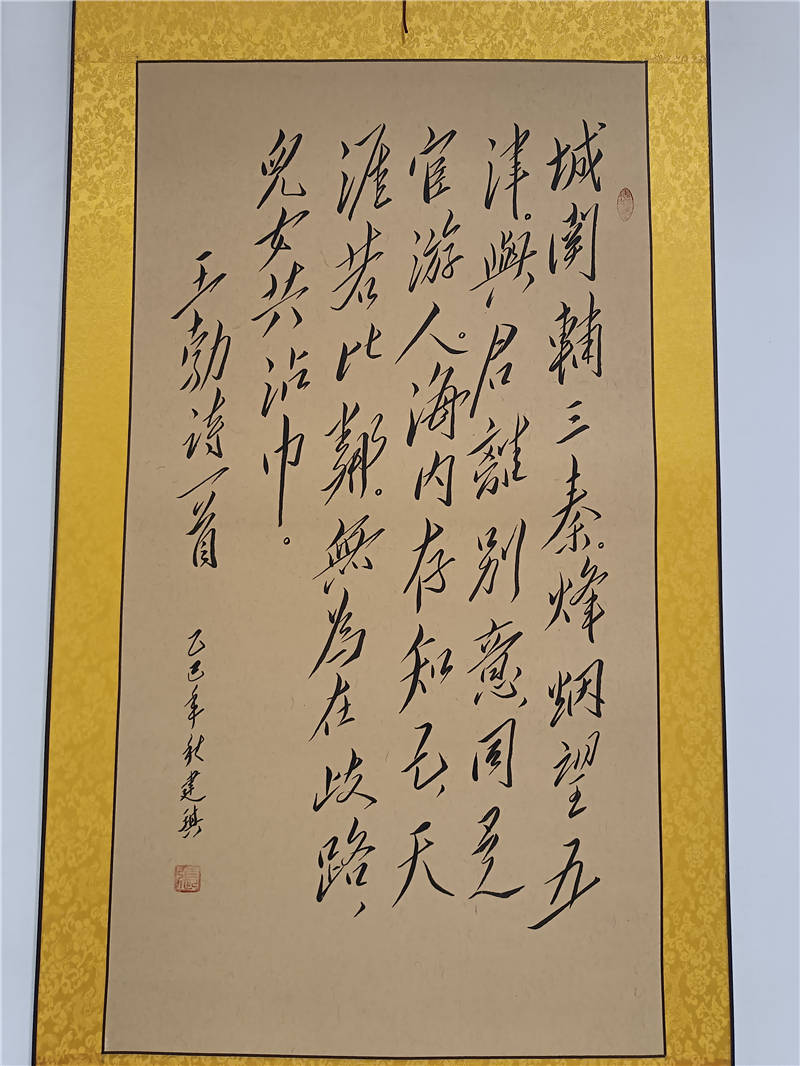 城闕輔三秦。烽烟望五
津。與君離别意，同是
宦游人。海内存知己，天
涯若比鄰。無為在歧路，
兒女共沾巾。
王勃诗一首
乙巳年秋建